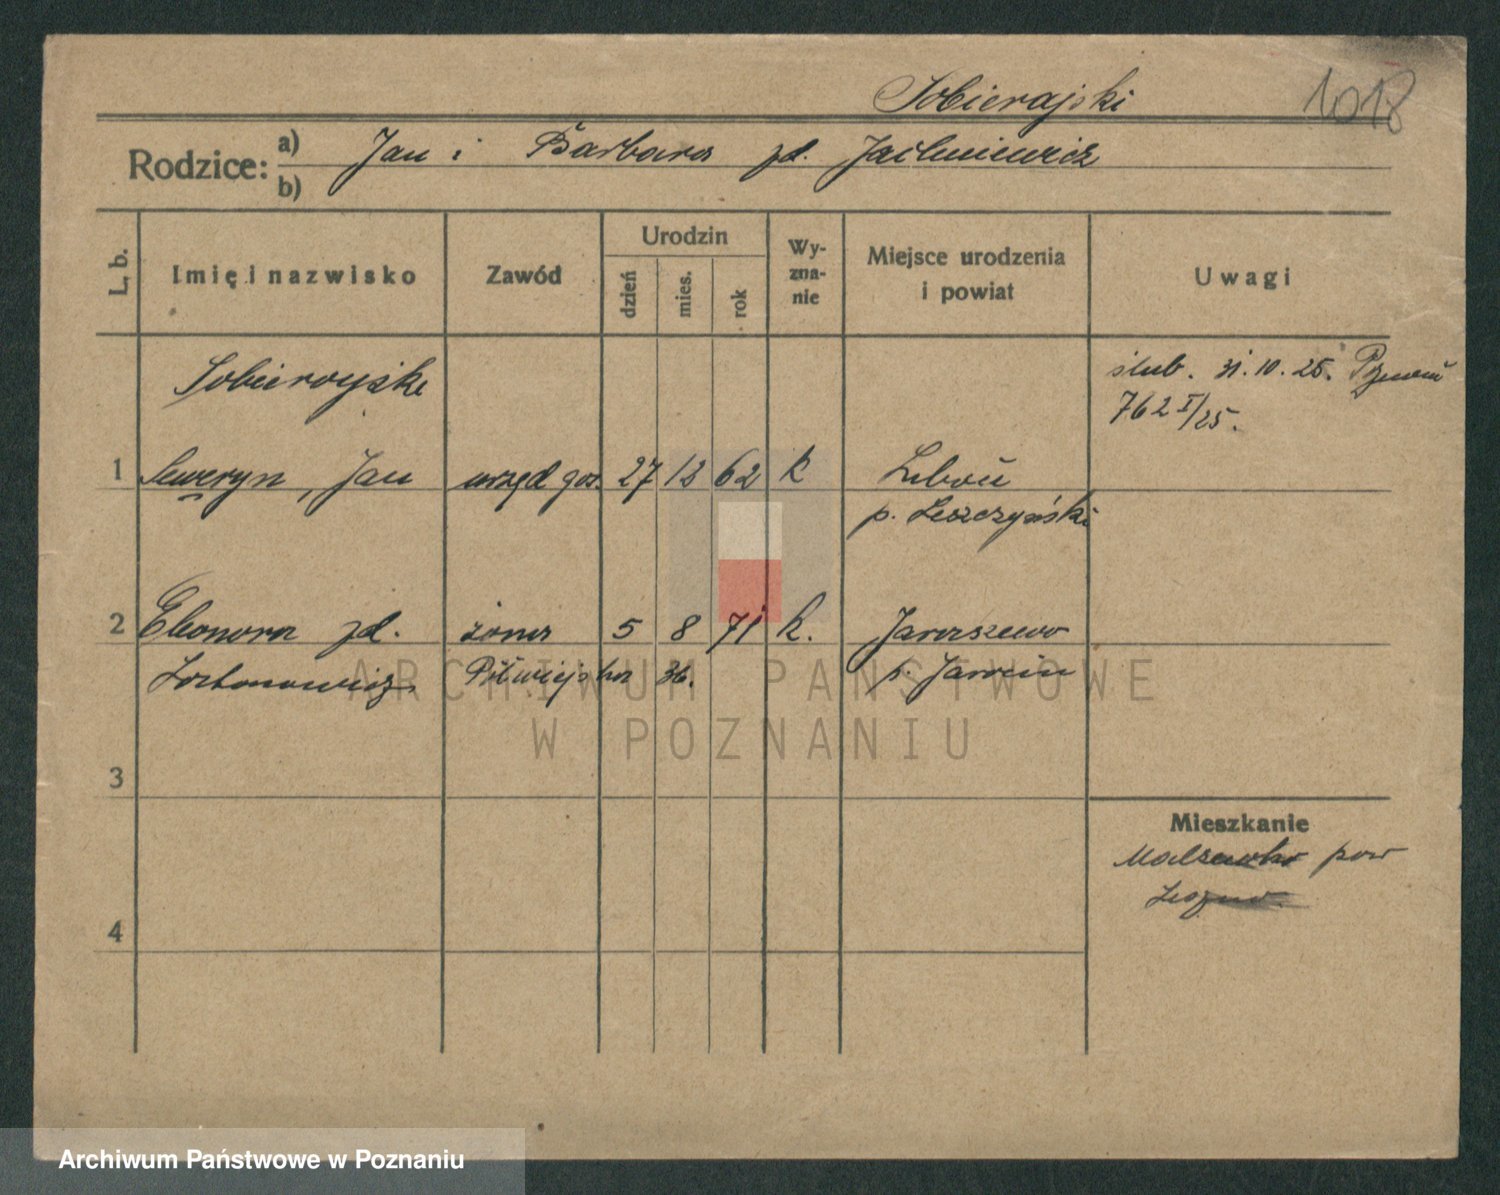 Sobierajski
1018
Rodzice: a) Jan i Barbara zd. Jaśkiewicz
b)
L. b. Imię i nazwisko Zawód Urodzin dzień mies. rok Wy-zna-nie Miejsce urodzenia i powiat Uwagi
Sobierajski
ślub. 31.10.25. Poznań
762 I/25.
1 Seweryn, Jan urzęd gos. 27 12 62 k Luboń
p. Leszczyński
2 Eleonora zd. żona 5 8 71 k. Jaraszewo
Półwiejska 36. p. Jarocin
3
Mieszkanie
pow
Leszno.
4
ARCHIWUM PAŃSTWOWE
W POZNANIU
Archiwum Państwowe w Poznaniu